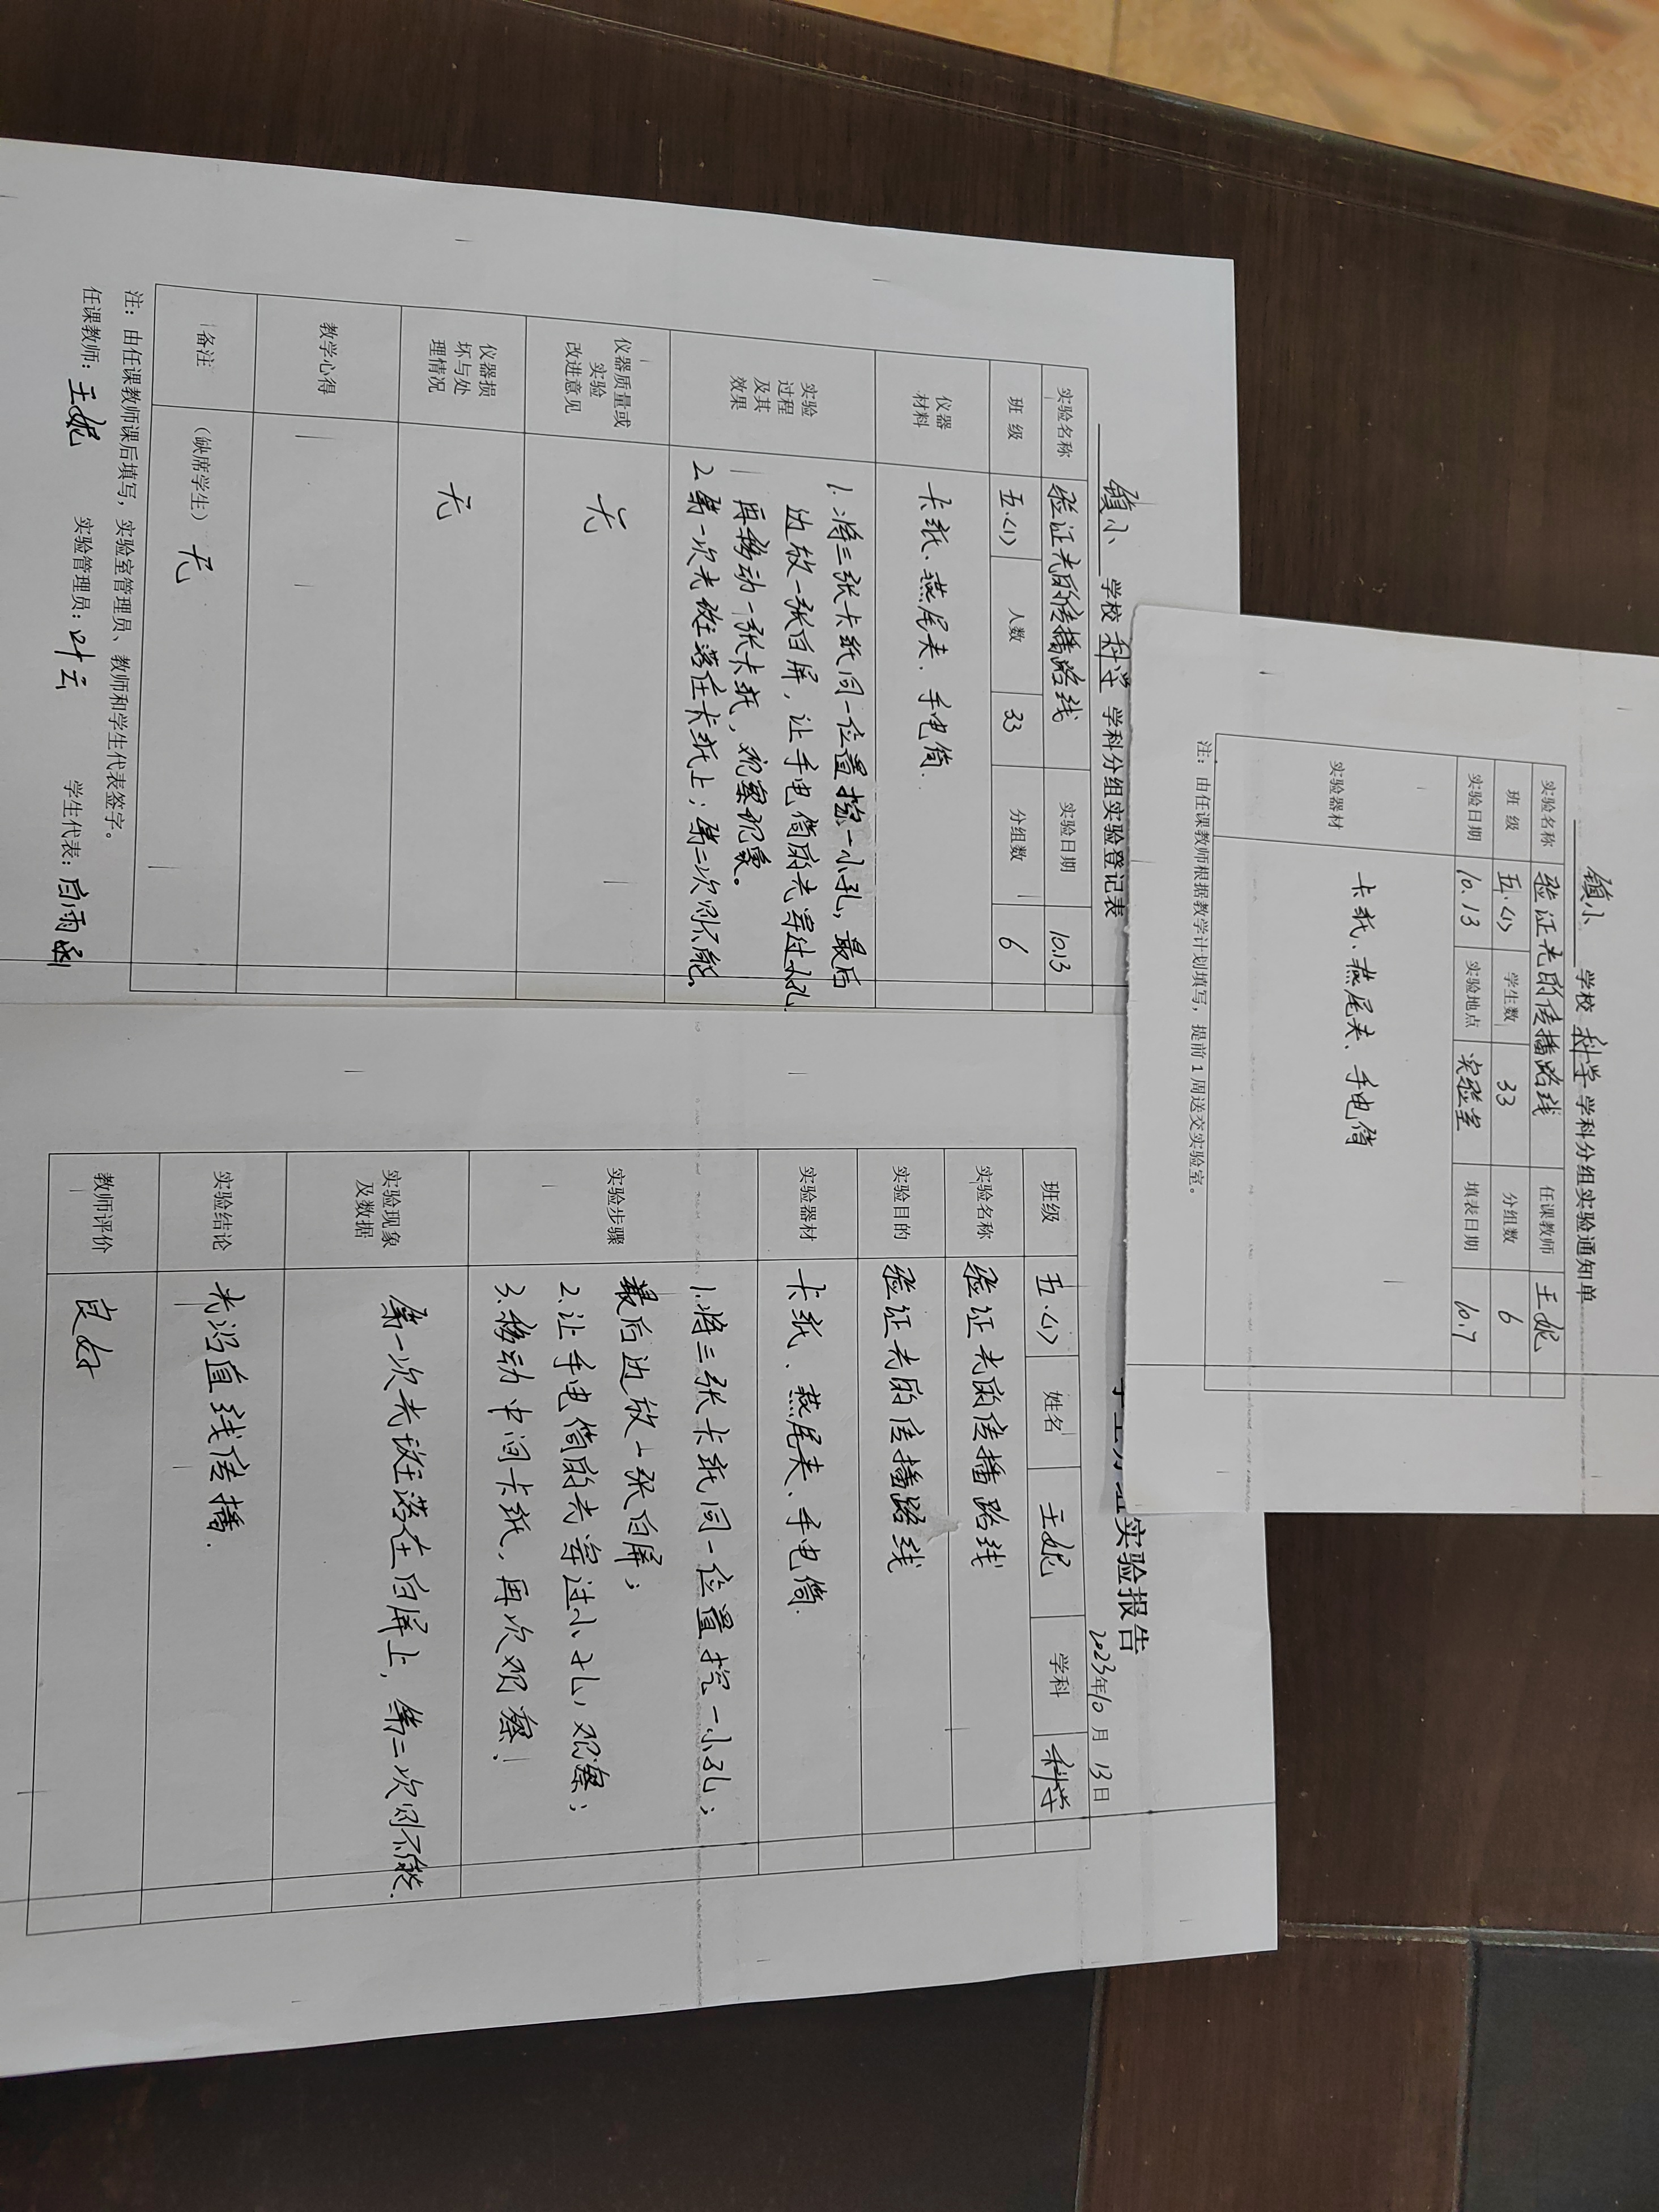 镇小 学校 科学 学科分组实验通知单
实验名称 验证光的传播路线 任课教师 王妮
班 级 五.(1) 学生数 33 分组数 6
实验日期 10.13 实验地点 实验室 填表日期 10.7
实验器材 卡纸、燕尾夹、手电筒
注：由任课教师根据教学计划填写，提前1周送交实验室。
镇小 学校 科学 学科分组实验登记表
实验名称 验证光的传播路线 实验日期 10.13
班 级 五.(1) 人数 33 分组数 6
仪器
材料
卡纸、燕尾夹、手电筒.
实验
过程
及其
效果
1.将三张卡纸同一位置挖一小孔,最后
边放一张白屏,让手电筒的光穿过小孔
再移动一张卡纸,观察现象。
2.第一次光斑落在卡纸上;第二次则不能。
仪器质量或
实验
改进意见
无
仪器损
坏与处
理情况
无
教学心得
备注 （缺席学生） 无
注：由任课教师课后填写，实验室管理员、教师和学生代表签字。
任课教师：王妮 实验管理员：叶云 学生代表：启雨
实验报告
2023年10月13日
班级 五.(1) 姓名 王妮 学科 科学
实验名称 验证光的传播路线
实验目的 验证光的传播路线
实验器材 卡纸、燕尾夹、手电筒.
实验步骤
1.将三张卡纸同一位置挖一小孔;
最后边放一张白屏;
2.让手电筒的光穿过小孔,观察;
3.移动中间卡纸,再次观察!
实验现象
及数据
第一次光斑落在白屏上,第二次则不能.
实验结论 光沿直线传播.
教师评价 良好